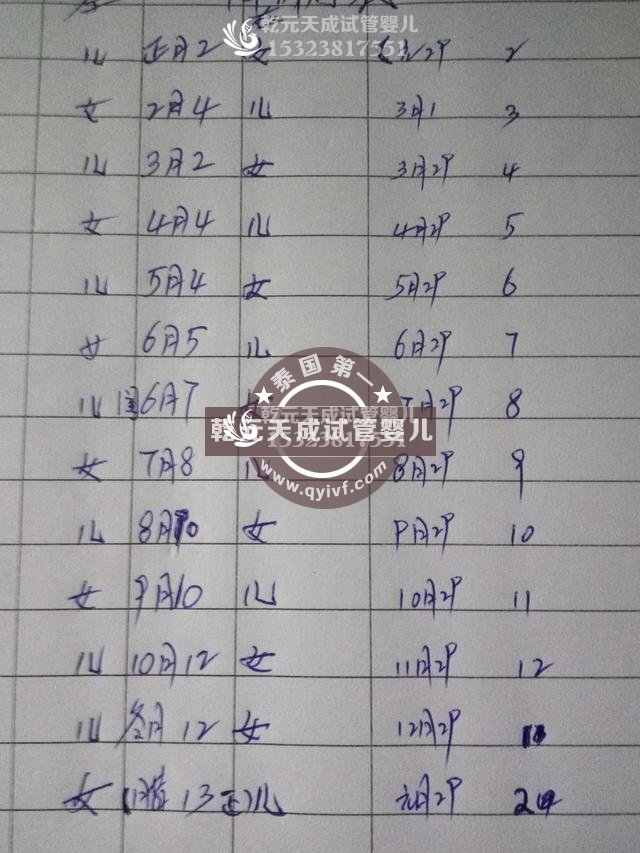 乾元天成试管婴儿
15323817551
儿 正月2 女 2
女 2月4 儿 3月1 3
儿 3月2 女 3月29 4
女 4月4 儿 4月29 5
儿 5月4 女 5月29 6
女 6月5 儿 6月29 7
泰国第一
儿 闰6月7 女 7月29 8
乾元天成试管婴儿
15323817551
女 7月8 儿 8月29 9
www.qyivf.com
儿 8月10 女 9月29 10
女 9月10 儿 10月29 11
儿 10月12 女 11月29 12
儿 冬月12 女 12月29
女 腊13 正 儿 元月29